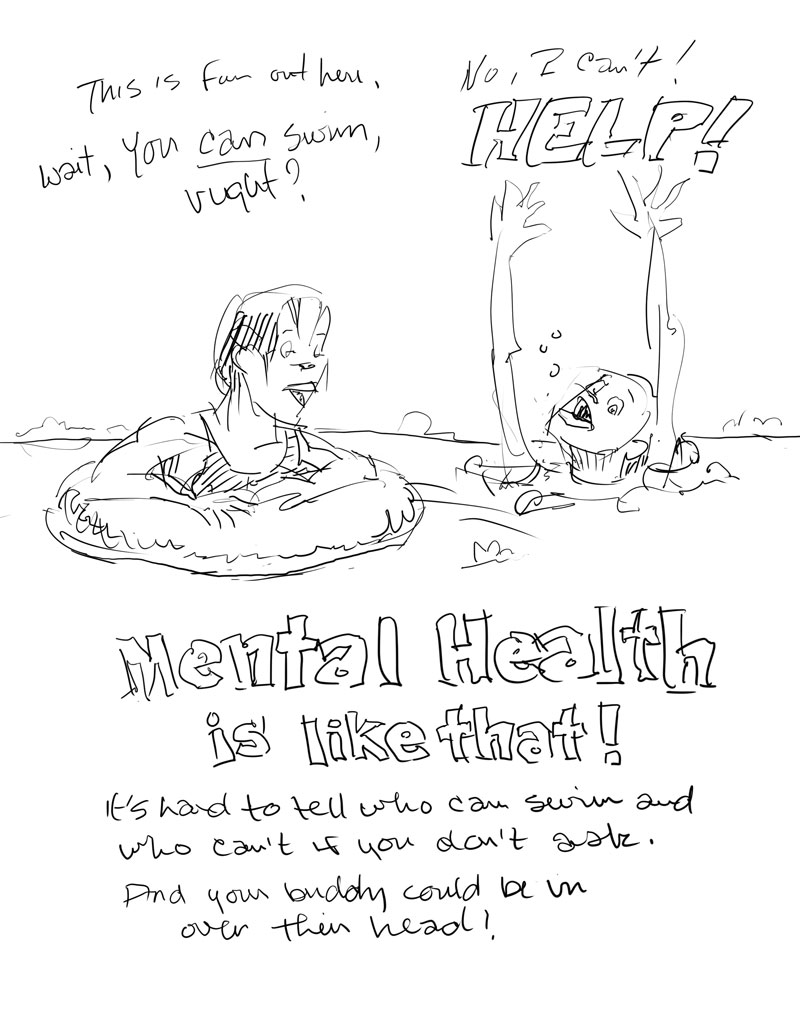 This is fun out here.
wait, you can swim,
right?
No, I can't!
HELP!
Mental Health
is like that!
It's hard to tell who can swim and
who can't if you don't ask.
And your buddy could be in
over their head!